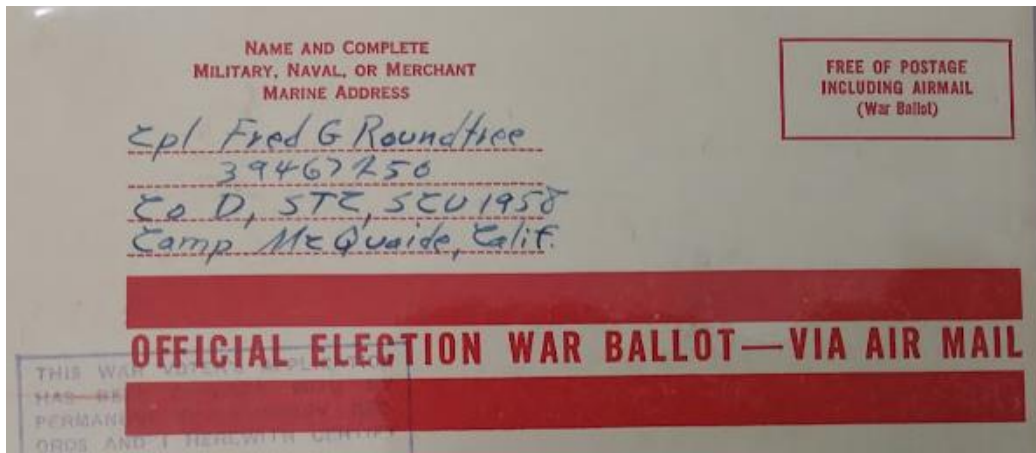 NAME AND COMPLETE
MILITARY, NAVAL, OR MERCHANT
MARINE ADDRESS
FREE OF POSTAGE
INCLUDING AIRMAIL
(War Ballot)
Cpl Fred G Roundtree
39467250
Co D, STC, SCU 1958
Camp McQuaide, Calif.
OFFICIAL ELECTION WAR BALLOT—VIA AIR MAIL
THIS WAR VOTER'S APPLICATION
HAS
ORDS AND I HEREWITH CERTIFY